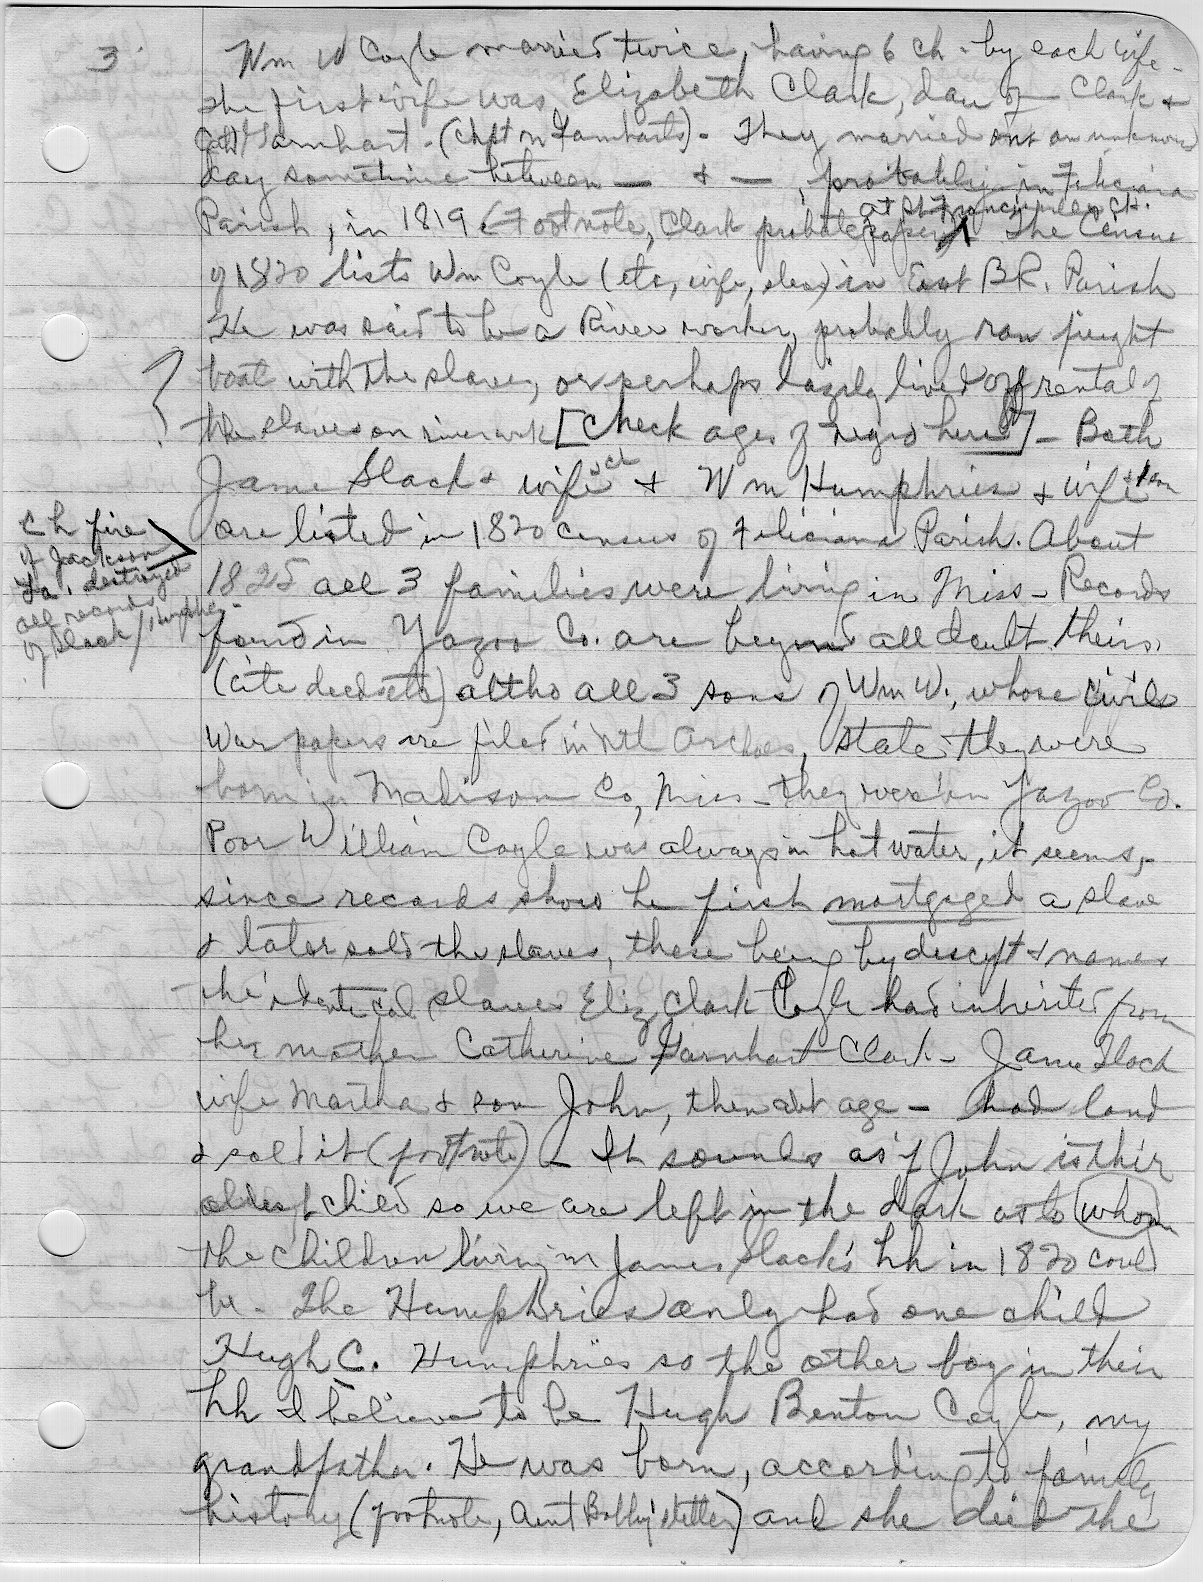 3
Wm W Coyle married twice, having 6 ch. by each wife.
The first wife was Elizabeth Clark, dau of — Clark &
Cath Garnhart. (Chpt on Garnharts). They married on an unknown
day sometime between — & —, probably in Feliciana
at St Francisville C.H.
Parish, in 1819 (Footnote, Clark probate papers). The Census
of 1820 lists Wm Coyle (etc, wife, slaves) in East B.R. Parish
He was said to be a River worker, probably ran freight
boat with the slaves, or perhaps lazily lived off rental of
?
the slaves on riverwork [Check ages of negro here] — Both
James Slack & wife & ch & Wm Humphries & wife & fam
are listed in 1820 census of Feliciana Parish. About
C h fire
of Jackson
La. destroyed
all records
of Slack/Humphries
1825 all 3 families were living in Miss — Records
found in Yazoo Co. are beyond all doubt theirs,
(cite deeds etc) altho all 3 sons of Wm W., whose Civil
War papers are filed in Natl Archives, state they were
born in Madison Co, Miss — they were in Yazoo Co.
Poor William Coyle was always in hot water, it seems,
since records show he first mortgaged a slave
& later sold the slaves, these being by descript & names
the identical slaves Eliz Clark Coyle had inherited from
her mother Catherine Garnhart Clark — James Slack
wife Martha & son John, then abt age — had land
& sold it (footnote) — It sounds as if John is their
oldest child so we are left in the dark as to whom
the children living in James Slack's hh in 1820 could
be. The Humphries only had one child
Hugh C. Humphries so the other boy in their
hh I believe to be Hugh Benton Coyle, my
grandfather. He was born, according to family
history (footnote, Aunt Bobby's letter) and she died the